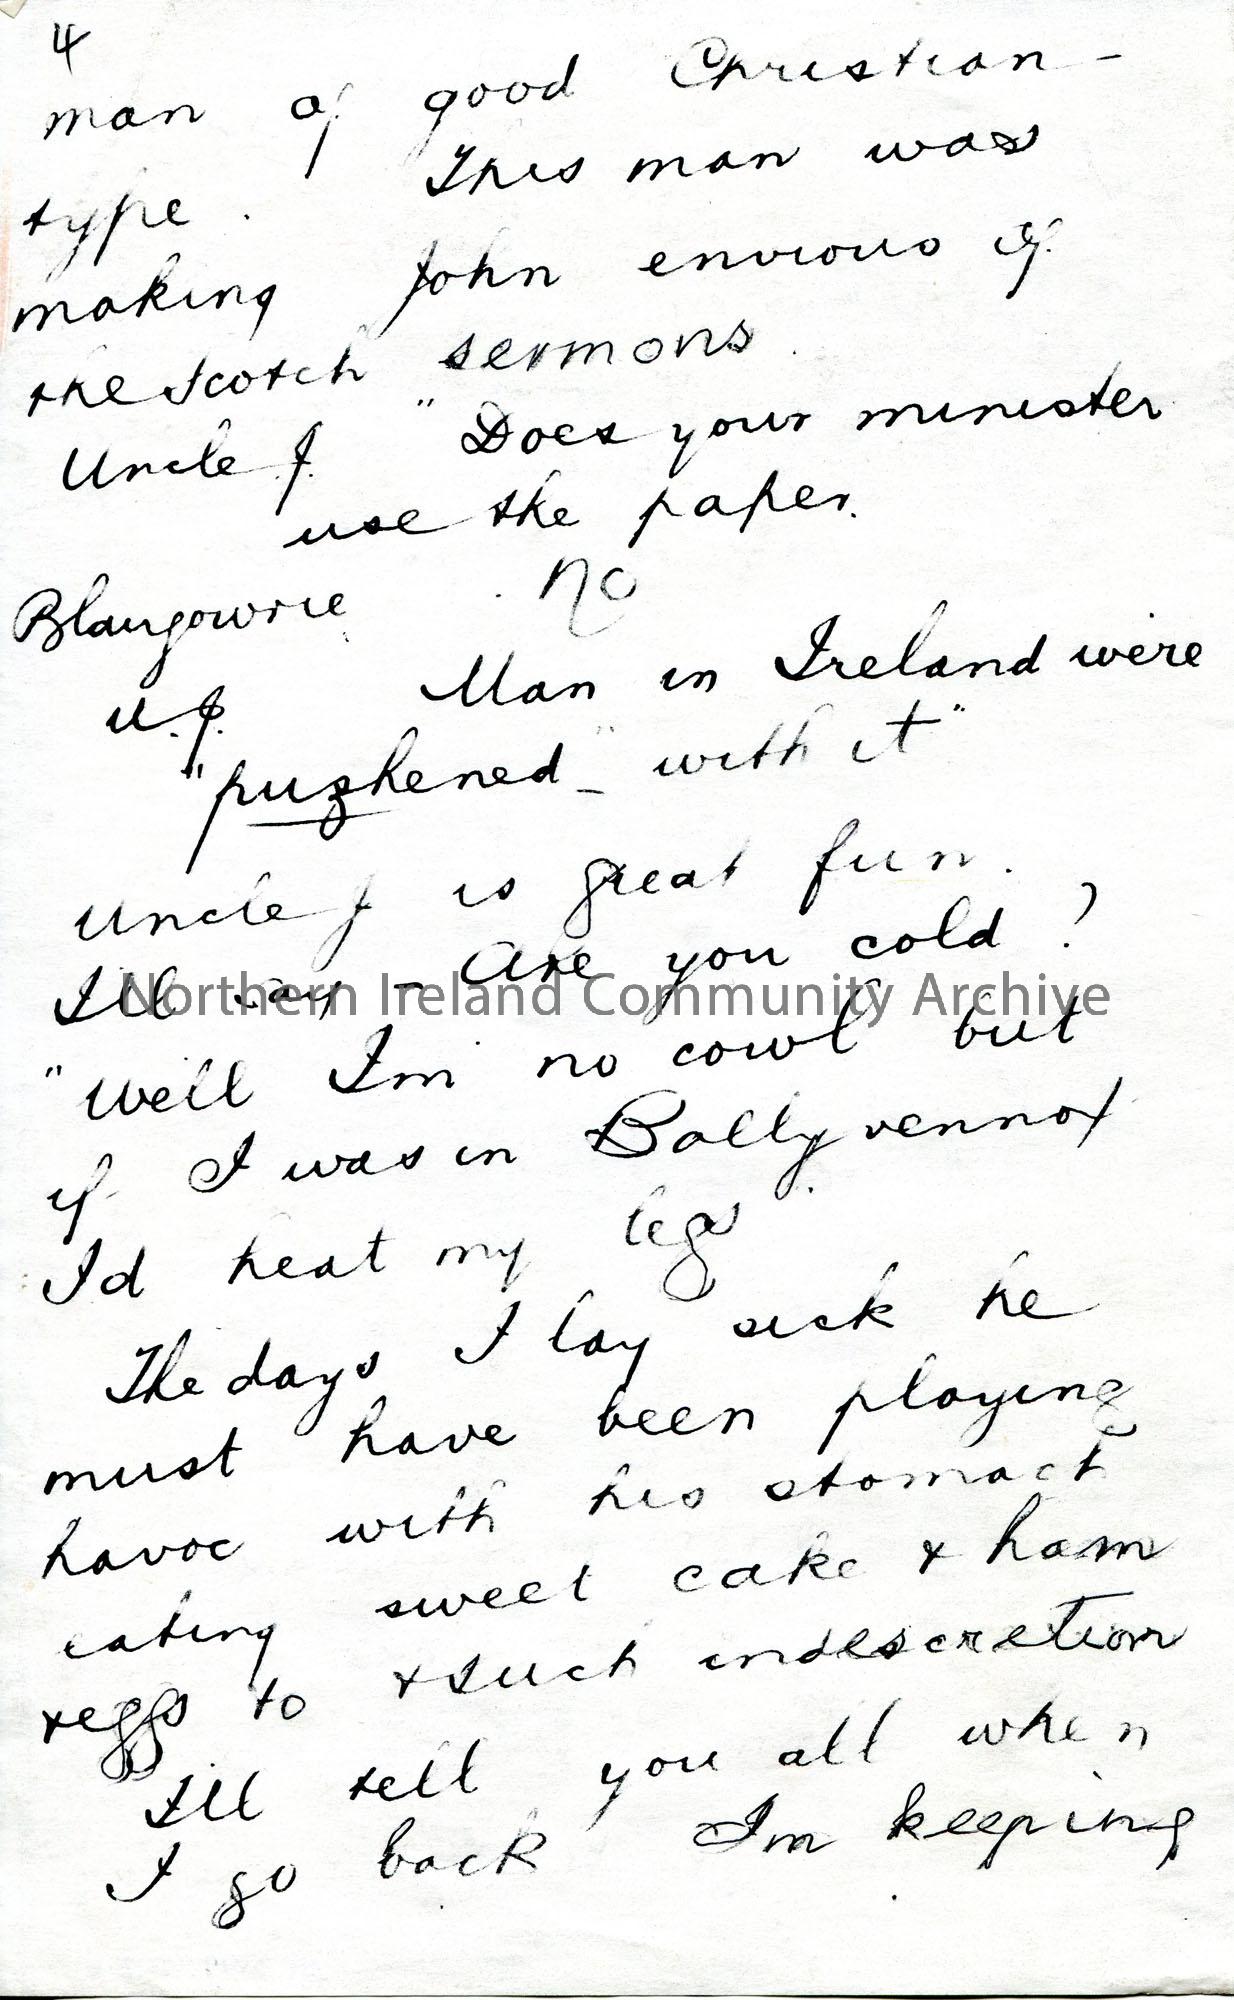 4
man of good Christian -
type. This man was
making John envious of
the Scotch sermons.
Uncle J. "Does your minister
use the paper.
Blairgowrie. No
U.J. Man in Ireland were
"puzhened" with it"
Uncle J is great fun.
I'll say - Are you cold?
Northern Ireland Community Archive
"Well I'm no cowl but
if I was in Ballyvennox
I'd heat my legs".
The days I lay sick he
must have been playing
havoc with his stomach
eating sweet cake & ham
& eggs to & such indescretion
I'll tell you all when
I go back I'm keeping